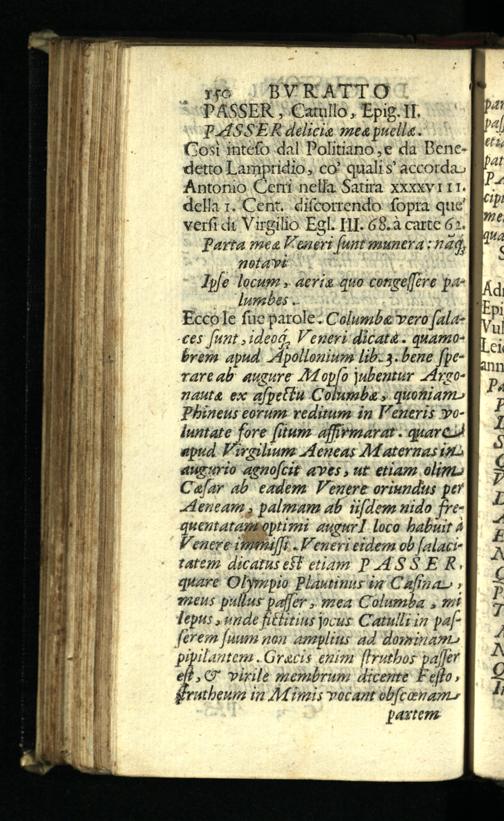 150 BVRATTO
PASSER, Catullo, Epig. II.
PASSER deliciæ meæ puellæ.
Così inteso dal Politiano, e da Bene-
detto Lampridio, co' quali s'accorda
Antonio Cerri nella Satira XXXXVIII.
della 1. Cent. discorrendo sopra que'
versi di Virgilio Egl. III. 68. à carte 62.
Parta meæ Veneri sunt munera: náq;
notavi
Ipse locum, aeriæ quo congessere pa-
lumbes.
Ecco le sue parole. Columbæ vero sala-
ces sunt, ideoq; Veneri dicatæ. quamo-
brem apud Apollonium lib. 3. bene spe-
rare ab augure Mopso jubentur Argo-
nautæ ex aspectu Columbæ, quoniam
Phineus eorum reditum in Veneris vo-
luntate fore situm affirmarat. quare
apud Virgilium Aeneas Maternas in
augurio agnoscit aves, ut etiam olim
Cæsar ab eadem Venere oriundus per
Aeneam, palmam ab iisdem nido fre-
quentatam optimi augurI loco habuit à
Venere immissi. Veneri eidem ob salaci-
tatem dicatus est etiam PASSER.
quare Olympio Plautinus in Casina,
meus pullus passer, mea Columba, mi
lepus, unde fictitius jocus Catulli in pas-
serem suum non amplius ad dominam
pipilantem. Græcis enim struthos passer
est, & virile membrum dicente Festo,
strutheum in Mimis vocant obscœnam
partem